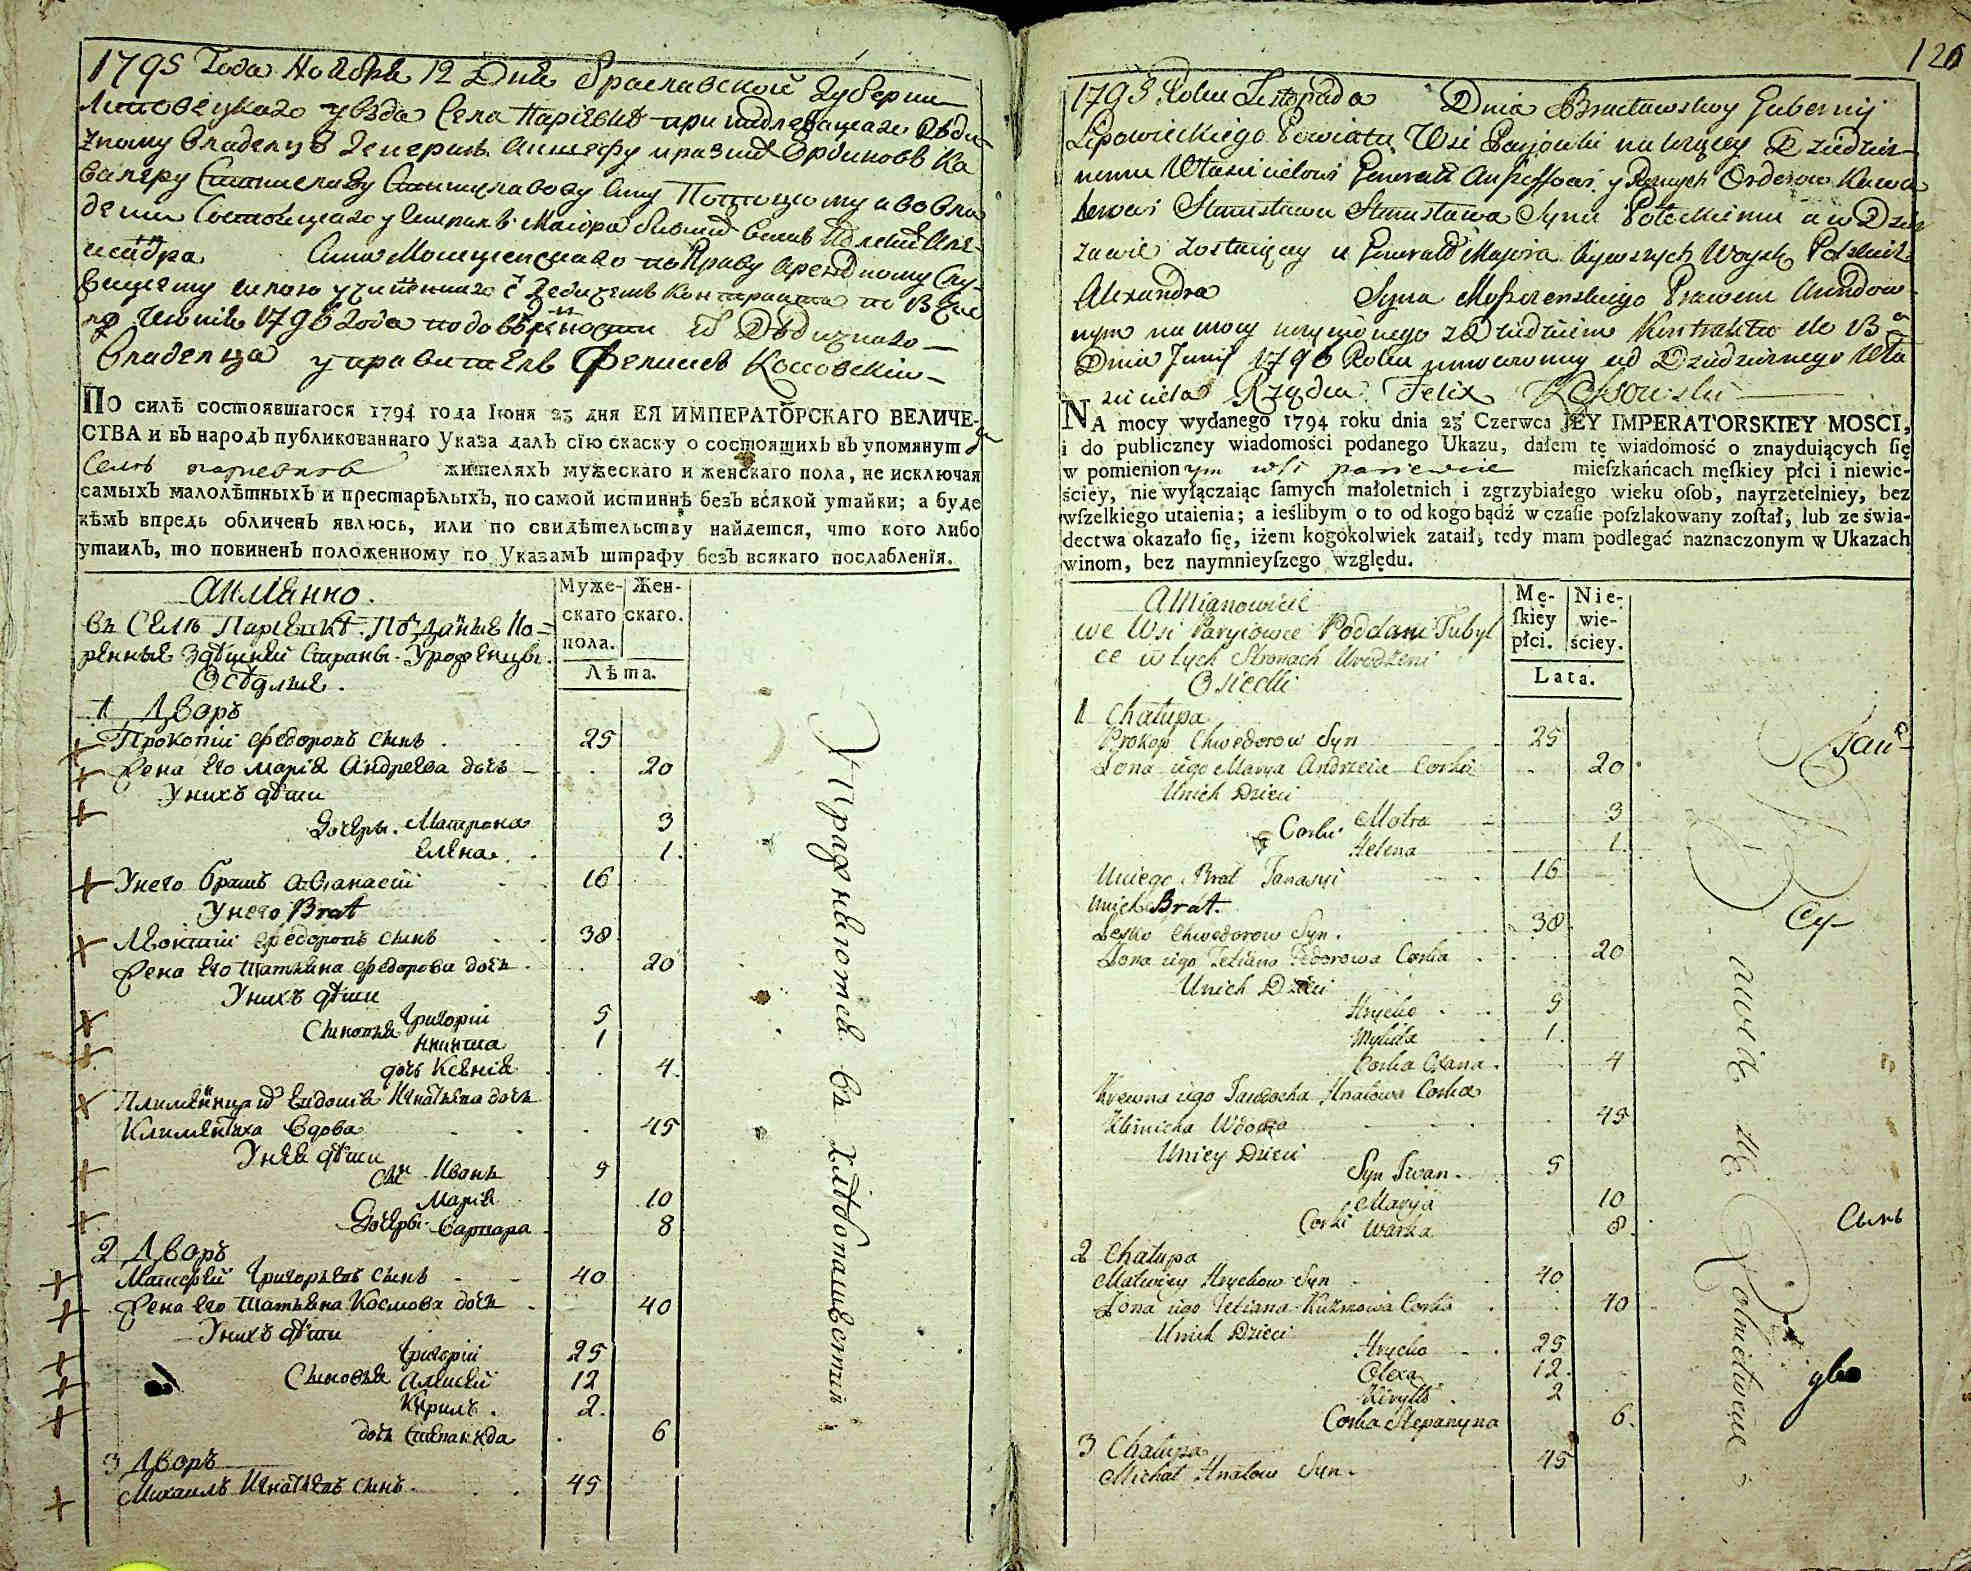 1795 Года Ноября 12 Дня Браславской Губернии
Липовецкаго уѣзда Села Паріевки принадлежащаго Дѣди
чному владелцу Генералъ Аншефу и разныхъ Ординовъ Ка
валеру Станиславу Станиславову сыну Потоцкому а во вла
дении Состоящаго у Генералъ Маіора бывшихъ войскъ Полскихъ Але
ксандра Сина Мощенскаго по Праву арендному
1796 года по довѣрности отъ Дѣдичнаго
Владелца управитель Феликсъ Коссовскій
По силѣ состоявшагося 1794 года Іюня 23 дня ЕЯ ИМПЕРАТОРСКАГО ВЕЛИЧЕ-
СТВА и въ народъ публикованнаго Указа далъ сію скаску о состоящихъ въ упомянут
Селѣ паріевкѣ жителяхъ мужескаго и женскаго пола, не исключая
самыхъ малолѣтныхъ и престарѣлыхъ, по самой истиннѣ безъ всякой утайки; а буде
кѣмъ впредь обличенъ явлюсь, или по свидѣтельству найдется, что кого либо
утаилъ, то повиненъ положенному по Указамъ штрафу безъ всякаго послабленія.
Муже- Жен-
скаго скаго.
пола.
Лѣта.
Аимянно.
въ Селѣ Паріевкѣ. Подданые Ко-
ренные здѣшней Страны Уроженцы.
Осѣдлые.
1 Дворъ
Прокопій Федоровъ сынъ 25
Жена его Марія Андреева дочь 20
У нихъ дѣти
Дочеры. Матрона 3
Елена 1
У него братъ Афанасій 16
У него Brat
Леонтій Федоровъ сынъ 38
Жена его Татьяна Федорова дочь 20
У нихъ дѣти
Сыновья Григорій 5
Никита 1
дочь Ксенія 4
Племянница Евдокія Игнатьева дочь
Климентиха вдова 45
У нея дѣти
Сынъ Иванъ 9
Марія 10
Дочеры. Варвара 8
2 Дворъ
Матфей Григорьевъ сынъ 40
Жена его Татьяна Космова дочь 40
У нихъ дѣти
Григорій 25
Сыновья Алексей 12
Кирилъ 2
дочь Степанида 6
3 Дворъ
Михаилъ Игнатьевъ сынъ 45
Упражняются въ хлѣбопашествѣ
120
1795 Roku Listopada Dnia Bracławskoy Gubernij
Lipowieckiego Powiatu Wsi Paryowki należącey Dziedzicz-
nemu Właścicielowi Generałł Anszeffowi y Roznych Orderow Kawa
lerowi Stanisława Stanisława Syna Potockiemu a w Dzier
zawie zostaiącey u Generałł Majora bywszych Woysk Polskich
Alexandra Syna Moszczenskiego Prawem Arendow
nym na mocy uczynionego z Dziedzicem Kontraktu do 13
Dnia Junij 1796 Roku umocowany od Dziedzicznego Wła
sciciela Rządca Felix Kossowski
NA mocy wydanego 1794 roku dnia 23 Czerwca JEY IMPERATORSKIEY MOSCI,
i do publiczney wiadomości podanego Ukazu, dałem tę wiadomość o znayduiących się
w pomienionym wsi pariewce mieſzkańcach męſkiey płci i niewie-
ściey, nie wyłączaiąc ſamych małoletnich i zgrzybiałego wieku oſob, nayrzetelniey, bez
wſzelkiego utaienia; a ieślibym o to od kogo bądź w czaſie poſzlakowany zoſtał, lub ze świa-
dectwa okazało ſię, iżem kogokolwiek zataił, tedy mam podlegać naznaczonym w Ukazach
winom, bez naymnieyſzego względu.
Mę- Nie-
ſkiey wie-
płci. ściey.
Lata.
A Mianowicie
we Wsi Paryiowce Poddani Tubyl
ce w tych Stronach Urodzeni
Osiedli
1 Chałupa
Prokop Chwedorow Syn 25
Żona iego Marya Andrzeia Corka 20
Unich Dzieci
Corki Motra 3
Helena 1
Uniego Brat Tanasyi 16
Unich Brat.
Lesko Chwedorow Syn. 38
Żona iego Tetiana Fedorowa Corka 20
Unich Dzieci
Hrycko 5
Mykita 1
Corka Oxana 4
Krewna iego Jawdocha Hnatowa Corka
Klimicha Wdowa 45
Uniey Dzieci
Syn Iwan 9
Marya 10
Corki Warka 8
2 Chałupa
Matwiey Hryckow Syn 40
Żona iego Tetiana Kuzmowa Corka 40
Unich Dzieci
Hrycko 25
Olexa 12
Kiryło 2
Corka Stepanyna 6
3 Chałupa
Michał Hnatow Syn 45
Bawią się Rolnictwem
Сынъ